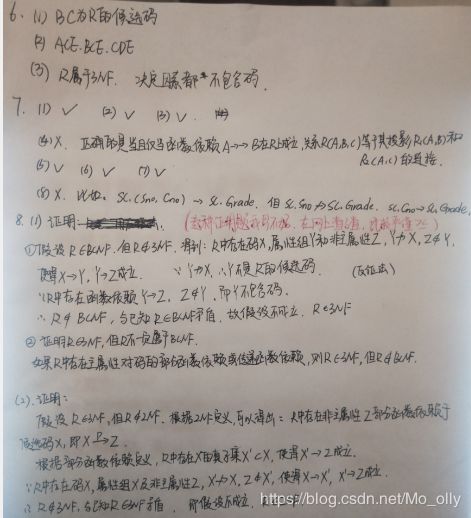 6. (1) BC为R的候选码
(2) ACE. BCE. CDE
(3) R属于3NF. 决定因素都不包含码.
7. (1) ✓ (2) ✓ (3) ✓.
(4) X. 正确的是当且仅当函数依赖A→→B在R上成立, 关系R(A,B,C)等于其投影R₁(A,B)和
R₂(A,C)的连接.
(5) ✓ (6) ✓ (7) ✓
(8) X. SC.(Sno, Cno) → SC.Grade. 但SC.Sno↛SC.Grade. SC.Cno↛SC.Grade
8. (1) 证明
①假设R∈BCNF. 但R∉3NF. 得到: R中存在码X, 属性组Y和非主属性Z, Y↛X, Z∉Y,
使得X→Y, Y→Z成立. ∵Y↛X, ∴Y不是R的候选码. (反证法)
∵R中存在函数依赖Y→Z, Z∉Y, 即Y不包含码.
∴R∉BCNF, 与已知R∈BCNF矛盾. 故假设不成立. R∈3NF
②证明R∈3NF, 但R不一定属于BCNF.
如果R中存在主属性对码的部分函数依赖或传递函数依赖, 则R∈3NF, 但R∉BCNF.
(2). 证明:
假设R∈3NF, 但R∉2NF. 根据2NF定义, 可以得出: R中存在非主属性Z部分函数依赖于
候选码X, 即X→Z.
根据部分函数依赖定义, R中存在X的真子集X'⊂X, 使得X'→Z成立.
∵R中存在码X, 属性组X'及非主属性Z, X'↛X, Z∉X', 使得X→X', X'→Z成立.
∴R∉3NF, 与已知R∈3NF矛盾. 即假设不成立.
https://blog.csdn.net/Mo_olly